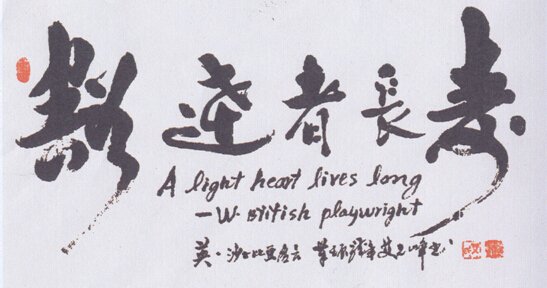 豁達者長壽
A light heart lives long
—W British playwright
英·沙士比亞